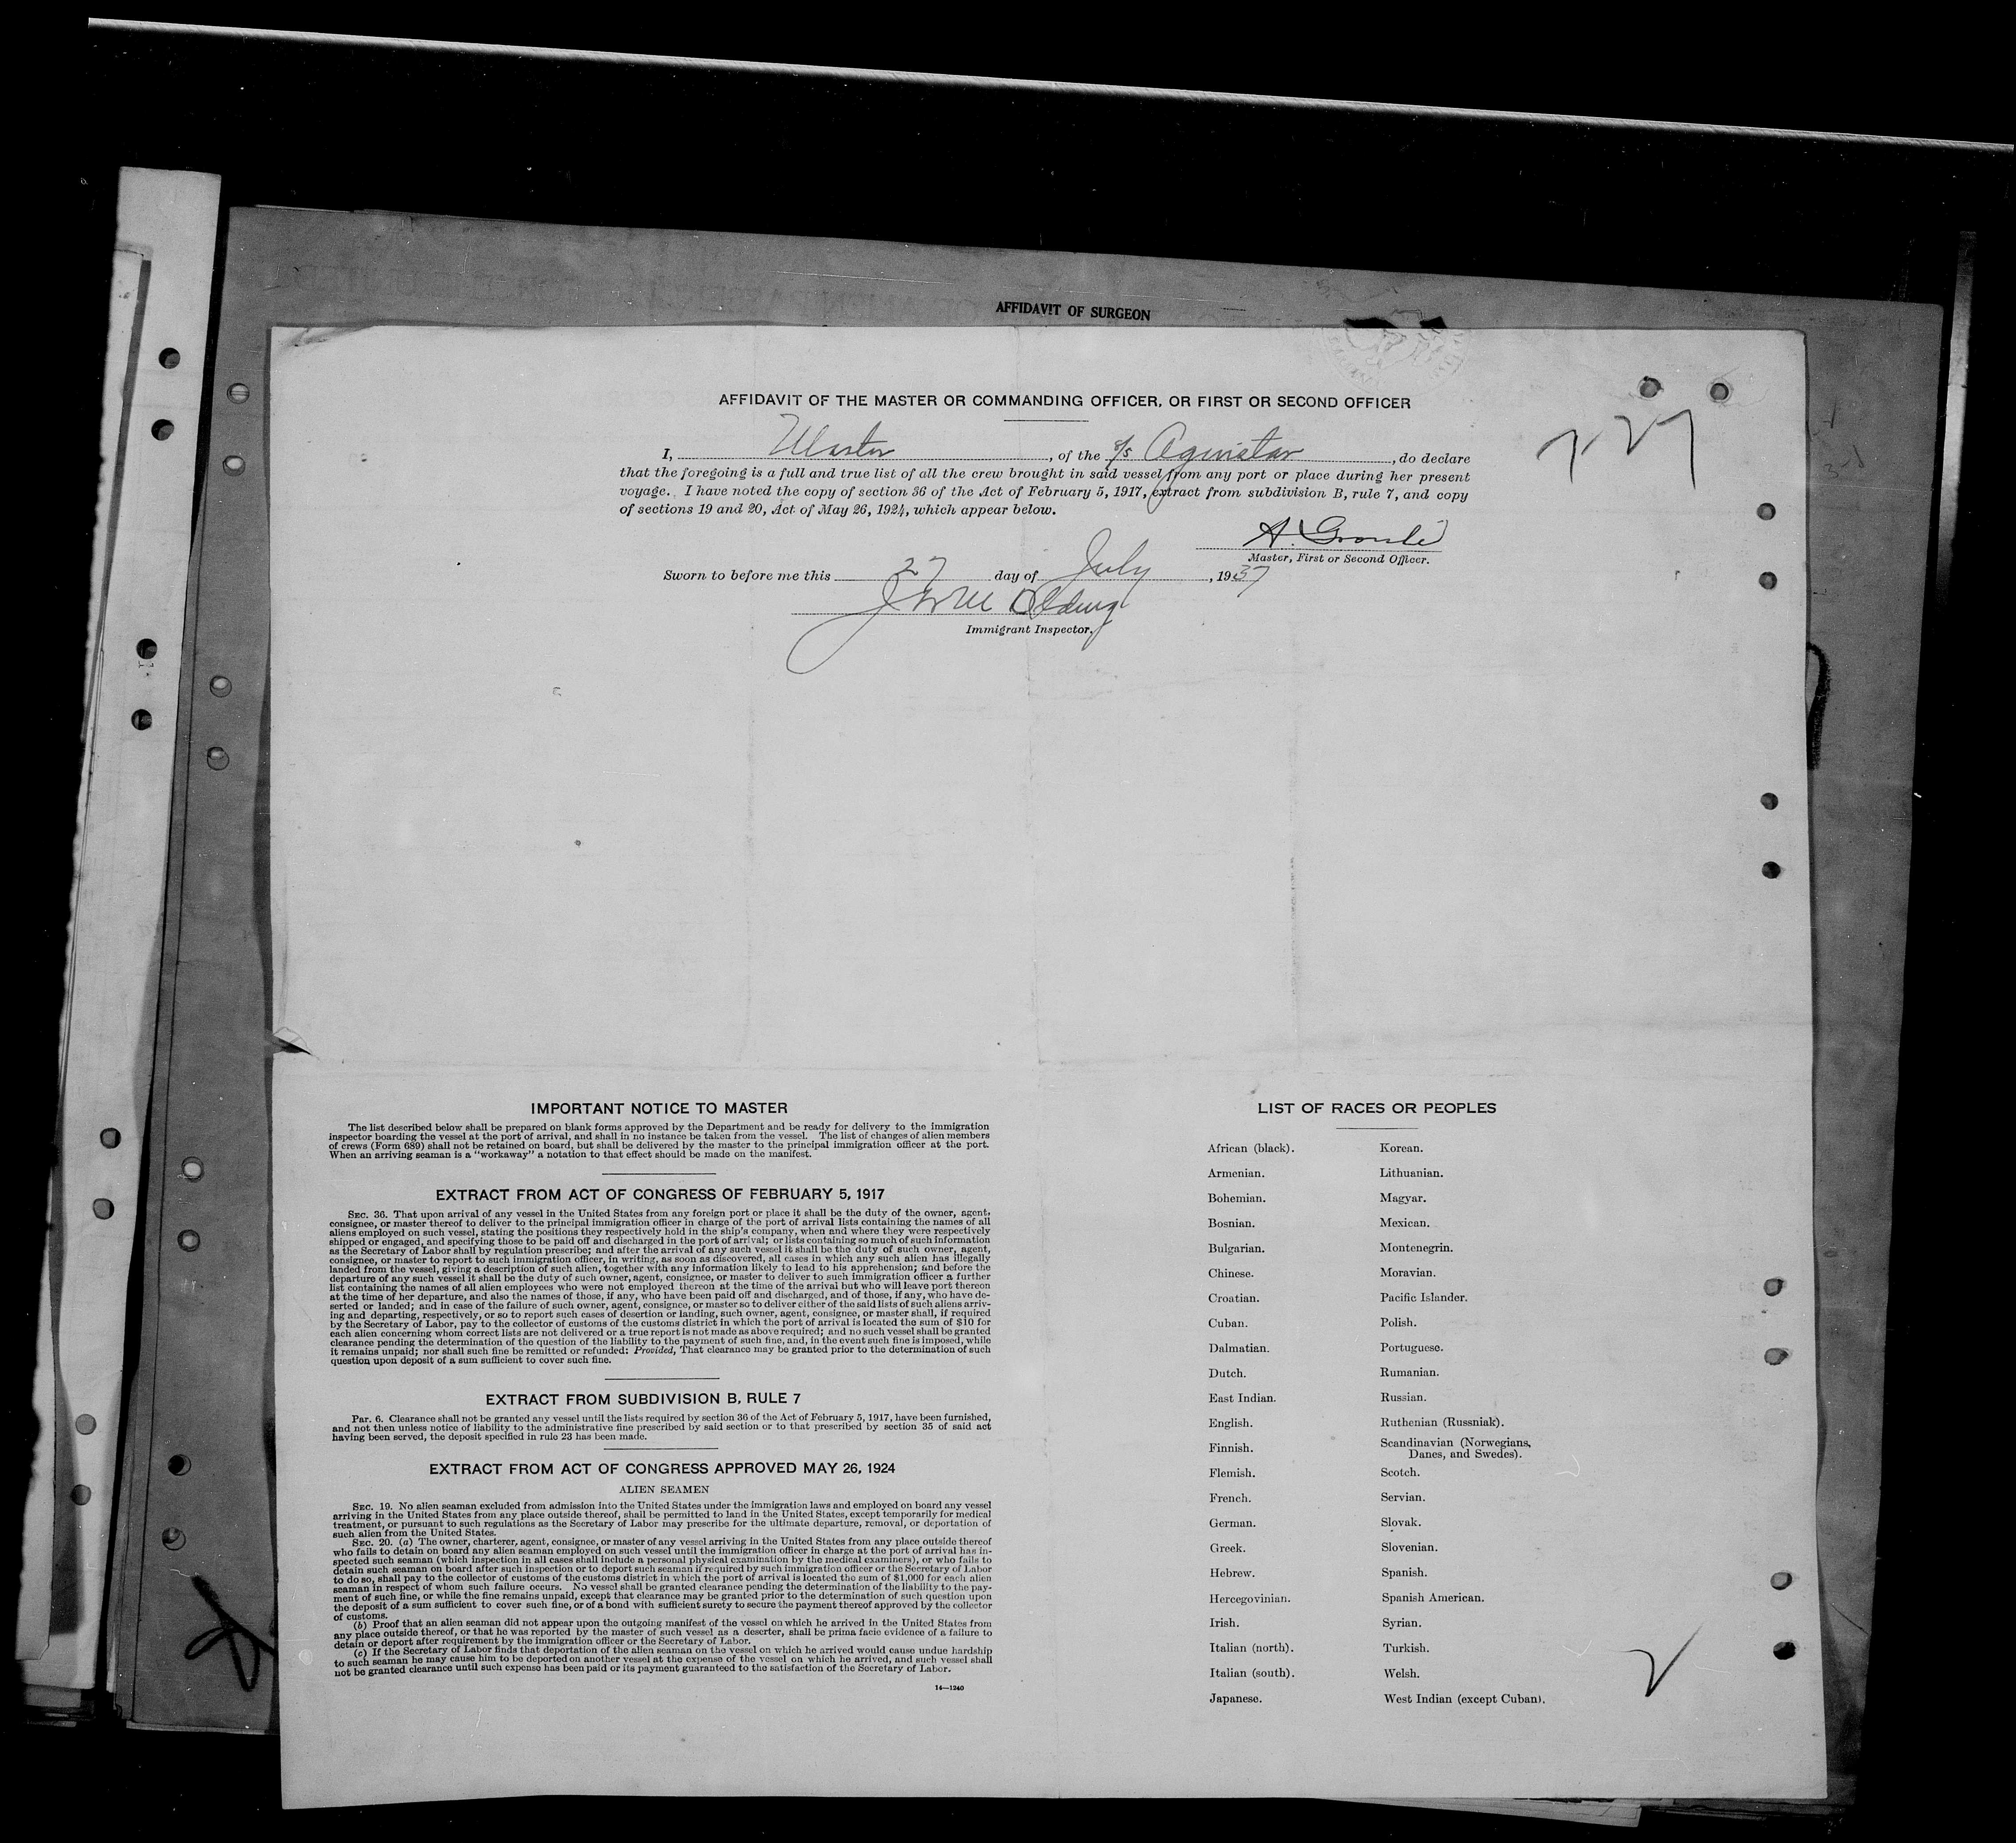 AFFIDAVIT OF SURGEON
AFFIDAVIT OF THE MASTER OR COMMANDING OFFICER, OR FIRST OR SECOND OFFICER
7-27
I, Master, of the S/S Agwistar, do declare
that the foregoing is a full and true list of all the crew brought in said vessel from any port or place during her present
voyage. I have noted the copy of section 36 of the Act of February 5, 1917, extract from subdivision B, rule 7, and copy
of sections 19 and 20, Act of May 26, 1924, which appear below.
A.
Master, First or Second Officer.
Sworn to before me this 27 day of July, 1937
Immigrant Inspector.
IMPORTANT NOTICE TO MASTER
The list described below shall be prepared on blank forms approved by the Department and be ready for delivery to the immigration
inspector boarding the vessel at the port of arrival, and shall in no instance be taken from the vessel. The list of changes of alien members
of crews (Form 689) shall not be retained on board, but shall be delivered by the master to the principal immigration officer at the port.
When an arriving seaman is a "workaway" a notation to that effect should be made on the manifest.
EXTRACT FROM ACT OF CONGRESS OF FEBRUARY 5, 1917
SEC. 36. That upon arrival of any vessel in the United States from any foreign port or place it shall be the duty of the owner, agent,
consignee, or master thereof to deliver to the principal immigration officer in charge of the port of arrival lists containing the names of all
aliens employed on such vessel, stating the positions they respectively hold in the ship's company, when and where they were respectively
shipped or engaged, and specifying those to be paid off and discharged in the port of arrival; or lists containing so much of such information
as the Secretary of Labor shall by regulation prescribe; and after the arrival of any such vessel it shall be the duty of such owner, agent,
consignee, or master to report to such immigration officer, in writing, as soon as discovered, all cases in which any such alien has illegally
landed from the vessel, giving a description of such alien, together with any information likely to lead to his apprehension; and before the
departure of any such vessel it shall be the duty of such owner, agent, consignee, or master to deliver to such immigration officer a further
list containing the names of all alien employees who were not employed thereon at the time of the arrival but who will leave port thereon
at the time of her departure, and also the names of those, if any, who have been paid off and discharged, and of those, if any, who have de-
serted or landed; and in case of the failure of such owner, agent, consignee, or master so to deliver either of the said lists of such aliens arriv-
ing and departing, respectively, or so to report such cases of desertion or landing, such owner, agent, consignee, or master shall, if required
by the Secretary of Labor, pay to the collector of customs of the customs district in which the port of arrival is located the sum of $10 for
each alien concerning whom correct lists are not delivered or a true report is not made as above required; and no such vessel shall be granted
clearance pending the determination of the question of the liability to the payment of such fine, and, in the event such fine is imposed, while
it remains unpaid; nor shall such fine be remitted or refunded: Provided, That clearance may be granted prior to the determination of such
question upon deposit of a sum sufficient to cover such fine.
EXTRACT FROM SUBDIVISION B, RULE 7
Par. 6. Clearance shall not be granted any vessel until the lists required by section 36 of the Act of February 5, 1917, have been furnished,
and not then unless notice of liability to the administrative fine prescribed by said section or to that prescribed by section 35 of said act
having been served, the deposit specified in rule 23 has been made.
EXTRACT FROM ACT OF CONGRESS APPROVED MAY 26, 1924
ALIEN SEAMEN
SEC. 19. No alien seaman excluded from admission into the United States under the immigration laws and employed on board any vessel
arriving in the United States from any place outside thereof, shall be permitted to land in the United States, except temporarily for medical
treatment, or pursuant to such regulations as the Secretary of Labor may prescribe for the ultimate departure, removal, or deportation of
such alien from the United States.
SEC. 20. (a) The owner, charterer, agent, consignee, or master of any vessel arriving in the United States from any place outside thereof
who fails to detain on board any alien seaman employed on such vessel until the immigration officer in charge at the port of arrival has in-
spected such seaman (which inspection in all cases shall include a personal physical examination by the medical examiners), or who fails to
detain such seaman on board after such inspection or to deport such seaman if required by such immigration officer or the Secretary of Labor
to do so, shall pay to the collector of customs of the customs district in which the port of arrival is located the sum of $1,000 for each alien
seaman in respect of whom such failure occurs. No vessel shall be granted clearance pending the determination of the liability to the pay-
ment of such fine, or while the fine remains unpaid, except that clearance may be granted prior to the determination of such question upon
the deposit of a sum sufficient to cover such fine, or of a bond with sufficient surety to secure the payment thereof approved by the collector
of customs.
(b) Proof that an alien seaman did not appear upon the outgoing manifest of the vessel on which he arrived in the United States from
any place outside thereof, or that he was reported by the master of such vessel as a deserter, shall be prima facie evidence of a failure to
detain or deport after requirement by the immigration officer or the Secretary of Labor.
(c) If the Secretary of Labor finds that deportation of the alien seaman on the vessel on which he arrived would cause undue hardship
to such seaman he may cause him to be deported on another vessel at the expense of the vessel on which he arrived, and such vessel shall
not be granted clearance until such expense has been paid or its payment guaranteed to the satisfaction of the Secretary of Labor.
14—1240
LIST OF RACES OR PEOPLES
African (black).
Armenian.
Bohemian.
Bosnian.
Bulgarian.
Chinese.
Croatian.
Cuban.
Dalmatian.
Dutch.
East Indian.
English.
Finnish.
Flemish.
French.
German.
Greek.
Hebrew.
Hercegovinian.
Irish.
Italian (north).
Italian (south).
Japanese.
Korean.
Lithuanian.
Magyar.
Mexican.
Montenegrin.
Moravian.
Pacific Islander.
Polish.
Portuguese.
Rumanian.
Russian.
Ruthenian (Russniak).
Scandinavian (Norwegians,
Danes, and Swedes).
Scotch.
Servian.
Slovak.
Slovenian.
Spanish.
Spanish American.
Syrian.
Turkish.
Welsh.
West Indian (except Cuban).